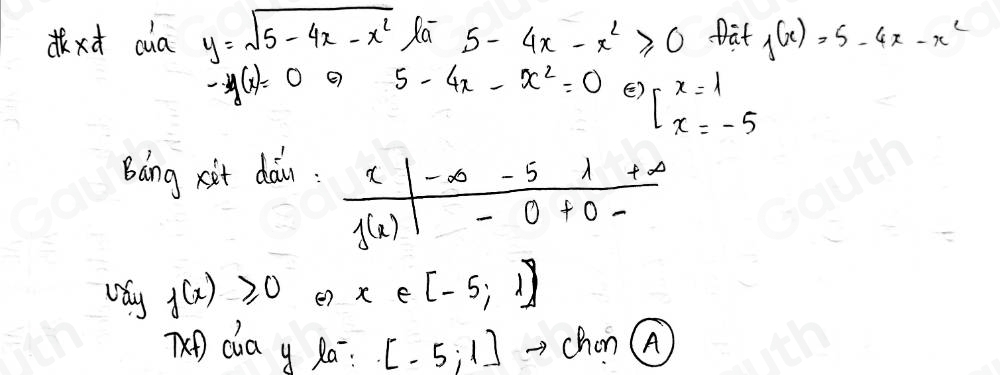 đkxđ của y = √(5 - 4x - x²) là 5 - 4x - x² ≥ 0 Đặt f(x) = 5 - 4x - x²
- f(x) = 0 ⇔ 5 - 4x - x² = 0 ⇔ [ x = 1
x = -5
Bảng xét dấu : x | -∞ -5 1 +∞
f(x) | - 0 + 0 -
Vậy f(x) ≥ 0 ⇔ x ∈ [-5; 1]
TXĐ của y là : [-5; 1] → chọn Ⓐ
Gauth